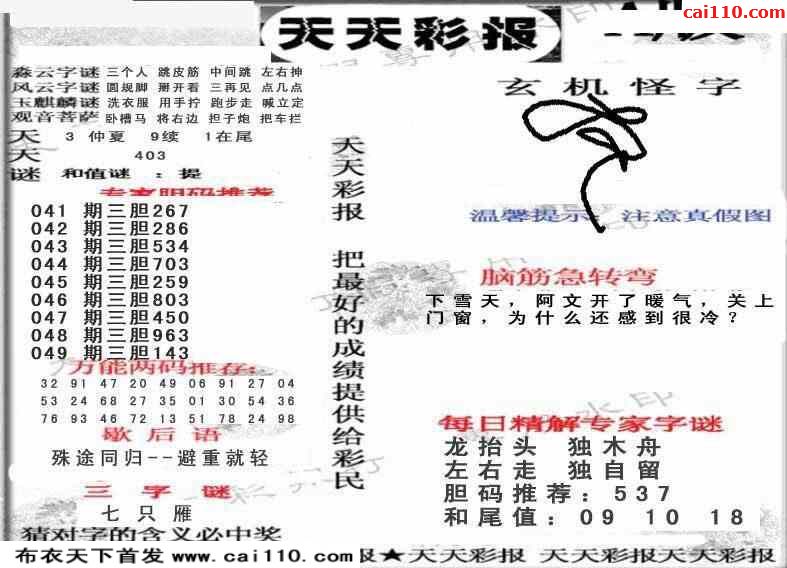 cai110.com
天天彩报
森云字谜 三个人 跳皮筋 中间跳 左右抻
风云字谜 圆规脚 掰开看 三再见 点几点
玉麒麟谜 洗衣服 用手拧 跑步走 喊立定
观音菩萨 卧槽马 将右边 担子炮 把车拦
天 3 仲夏 9续 1在尾
天 403
谜 和值谜 ：提
专家胆码推荐
041 期三胆267
042 期三胆286
043 期三胆534
044 期三胆703
045 期三胆259
046 期三胆803
047 期三胆450
048 期三胆963
049 期三胆143
万能两码推荐:
32 91 47 20 49 06 91 27 04
53 24 68 27 35 01 30 54 36
76 93 46 72 13 51 78 24 98
歇后语
殊途同归--避重就轻
三字谜
七只雁
猜对字的含义必中奖
天天彩报 把最好的成绩提供给彩民
玄机怪字
温馨提示：注意真假图
脑筋急转弯
下雪天，阿文开了暖气，关上
门窗，为什么还感到很冷？
每日精解专家字谜
龙抬头 独木舟
左右走 独自留
胆码推荐：537
和尾值：09 10 18
布衣天下首发 www.cai110.com 报★天天彩报 天天彩报 天天彩报